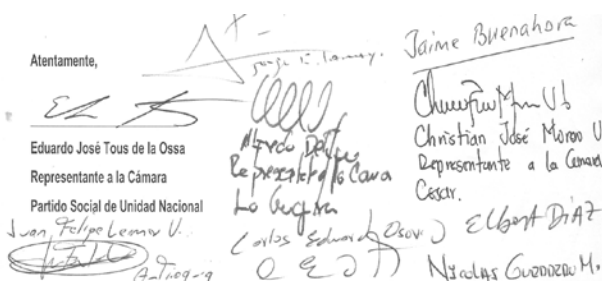 Atentamente,
Eduardo José Tous de la Ossa
Representante a la Cámara
Partido Social de Unidad Nacional
Juan Felipe Lemos U.
Antioquia
Alfredo
Representante a la Camara
La Guajira
Carlos Eduardo Osorio
Jaime Buenahora
Christian José Moreno V
Representante a la Camara
Cesar.
Elbert Díaz
Nicolas Guerrero M.